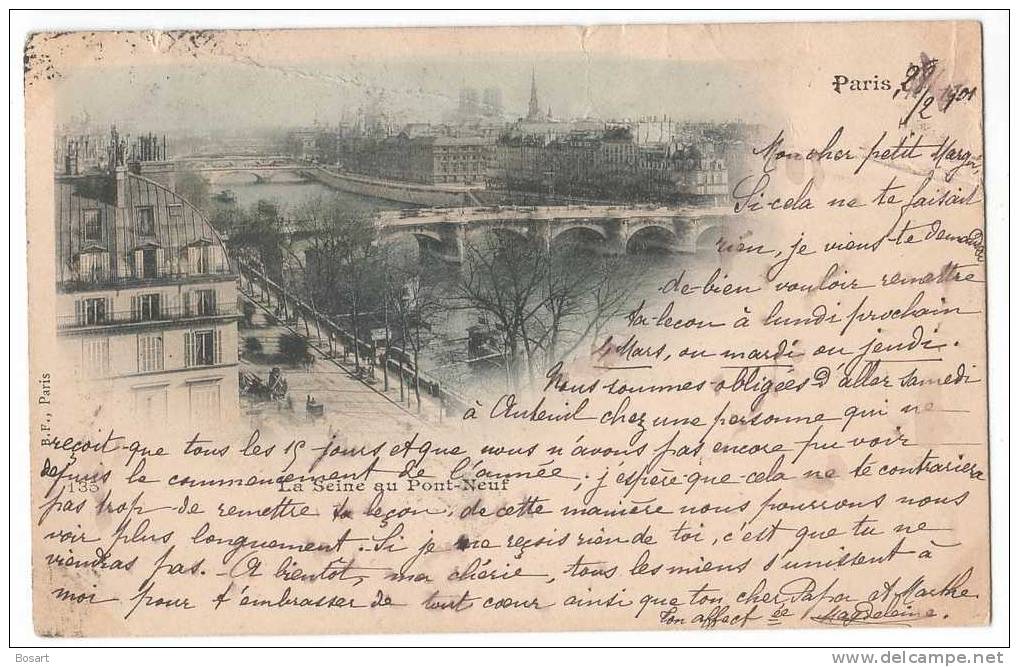 Paris, 28/2 1901
Mon cher petit Margot,
Si cela ne te faisait
rien, je viens te demander
de bien vouloir remettre
ta leçon à lundi prochain
4 Mars, ou mardi ou jeudi.
Nous sommes obligées d'aller samedi
à Auteuil chez une personne qui ne
reçoit que tous les 15 jours et que nous n'avons pas encore pu voir
depuis le commencement de l'année; j'espère que cela ne te contrariera
135 La Seine au Pont-Neuf
pas trop de remettre ta leçon; de cette manière nous pourrons nous
voir plus longuement. Si je ne reçois rien de toi, c'est que tu ne
viendras pas. - A bientôt, ma chérie, tous les miens s'unissent à
moi pour t'embrasser de tout cœur ainsi que ton cher Papa et Marthe.
Ton affect ée Magdeleine.
B.F., Paris
Bosart
http://www.delcampe.net